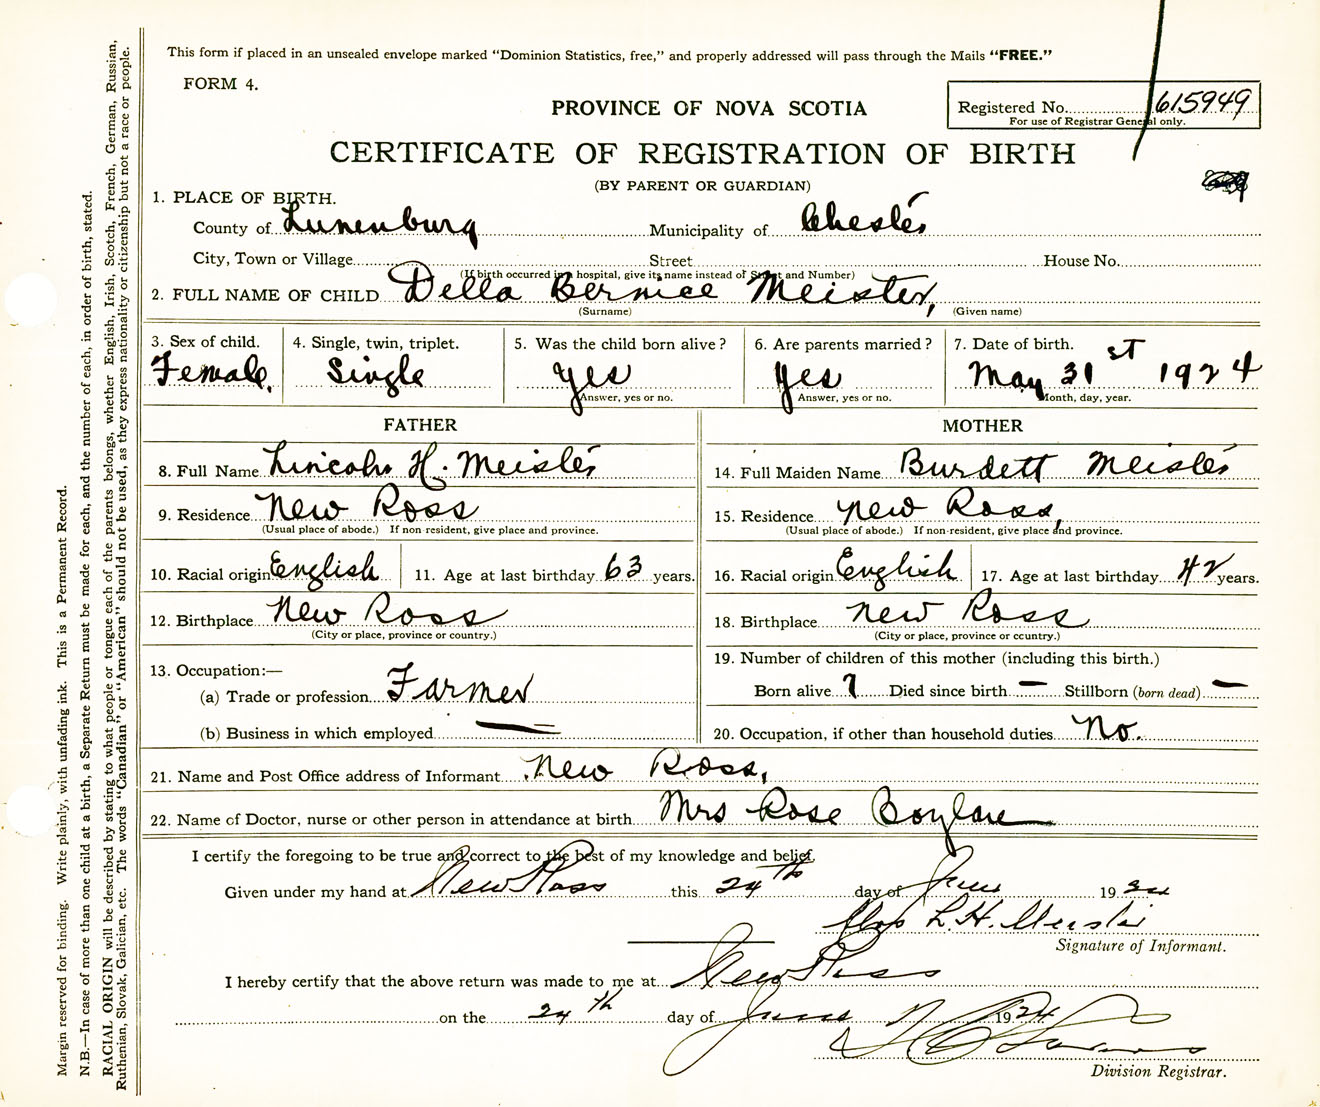 This form if placed in an unsealed envelope marked “Dominion Statistics, free,” and properly addressed will pass through the Mails “FREE.”
FORM 4.
PROVINCE OF NOVA SCOTIA
Registered No. 615949
For use of Registrar General only.
CERTIFICATE OF REGISTRATION OF BIRTH
(BY PARENT OR GUARDIAN)
1. PLACE OF BIRTH.
County of Lunenburg Municipality of Chester
City, Town or Village Street House No.
(If birth occurred in a hospital, give its name instead of Street and Number)
2. FULL NAME OF CHILD Della Bernice Meister,
(Surname) (Given name)
3. Sex of child. 4. Single, twin, triplet. 5. Was the child born alive? 6. Are parents married? 7. Date of birth.
Female. Single yes yes May 31st 1924
Answer, yes or no. Answer, yes or no. Month, day, year.
FATHER MOTHER
8. Full Name Lincoln H. Meister 14. Full Maiden Name Burdett Meister
9. Residence New Ross 15. Residence New Ross,
(Usual place of abode.) If non-resident, give place and province. (Usual place of abode.) If non-resident, give place and province.
10. Racial origin English 11. Age at last birthday 63 years. 16. Racial origin English 17. Age at last birthday 42 years.
12. Birthplace New Ross 18. Birthplace New Ross
(City or place, province or country.) (City or place, province or country.)
13. Occupation:— 19. Number of children of this mother (including this birth.)
(a) Trade or profession Farmer Born alive 7 Died since birth — Stillborn (born dead) —
(b) Business in which employed — 20. Occupation, if other than household duties No.
21. Name and Post Office address of Informant New Ross,
22. Name of Doctor, nurse or other person in attendance at birth Mrs Rose Boylan
I certify the foregoing to be true and correct to the best of my knowledge and belief.
Given under my hand at New Ross this 24th day of June 1924
Mrs L. H. Meister
Signature of Informant.
I hereby certify that the above return was made to me at New Ross
on the 24th day of June 1924
Division Registrar.
Margin reserved for binding. Write plainly, with unfading ink. This is a Permanent Record.
N.B.—In case of more than one child at a birth, a Separate Return must be made for each, and the number of each, in order of birth, stated.
RACIAL ORIGIN will be described by stating to what people or tongue each of the parents belongs, whether English, Irish, Scotch, French, German, Russian,
Ruthenian, Slovak, Galician, etc. The words “Canadian” or “American” should not be used, as they express nationality or citizenship but not a race or people.